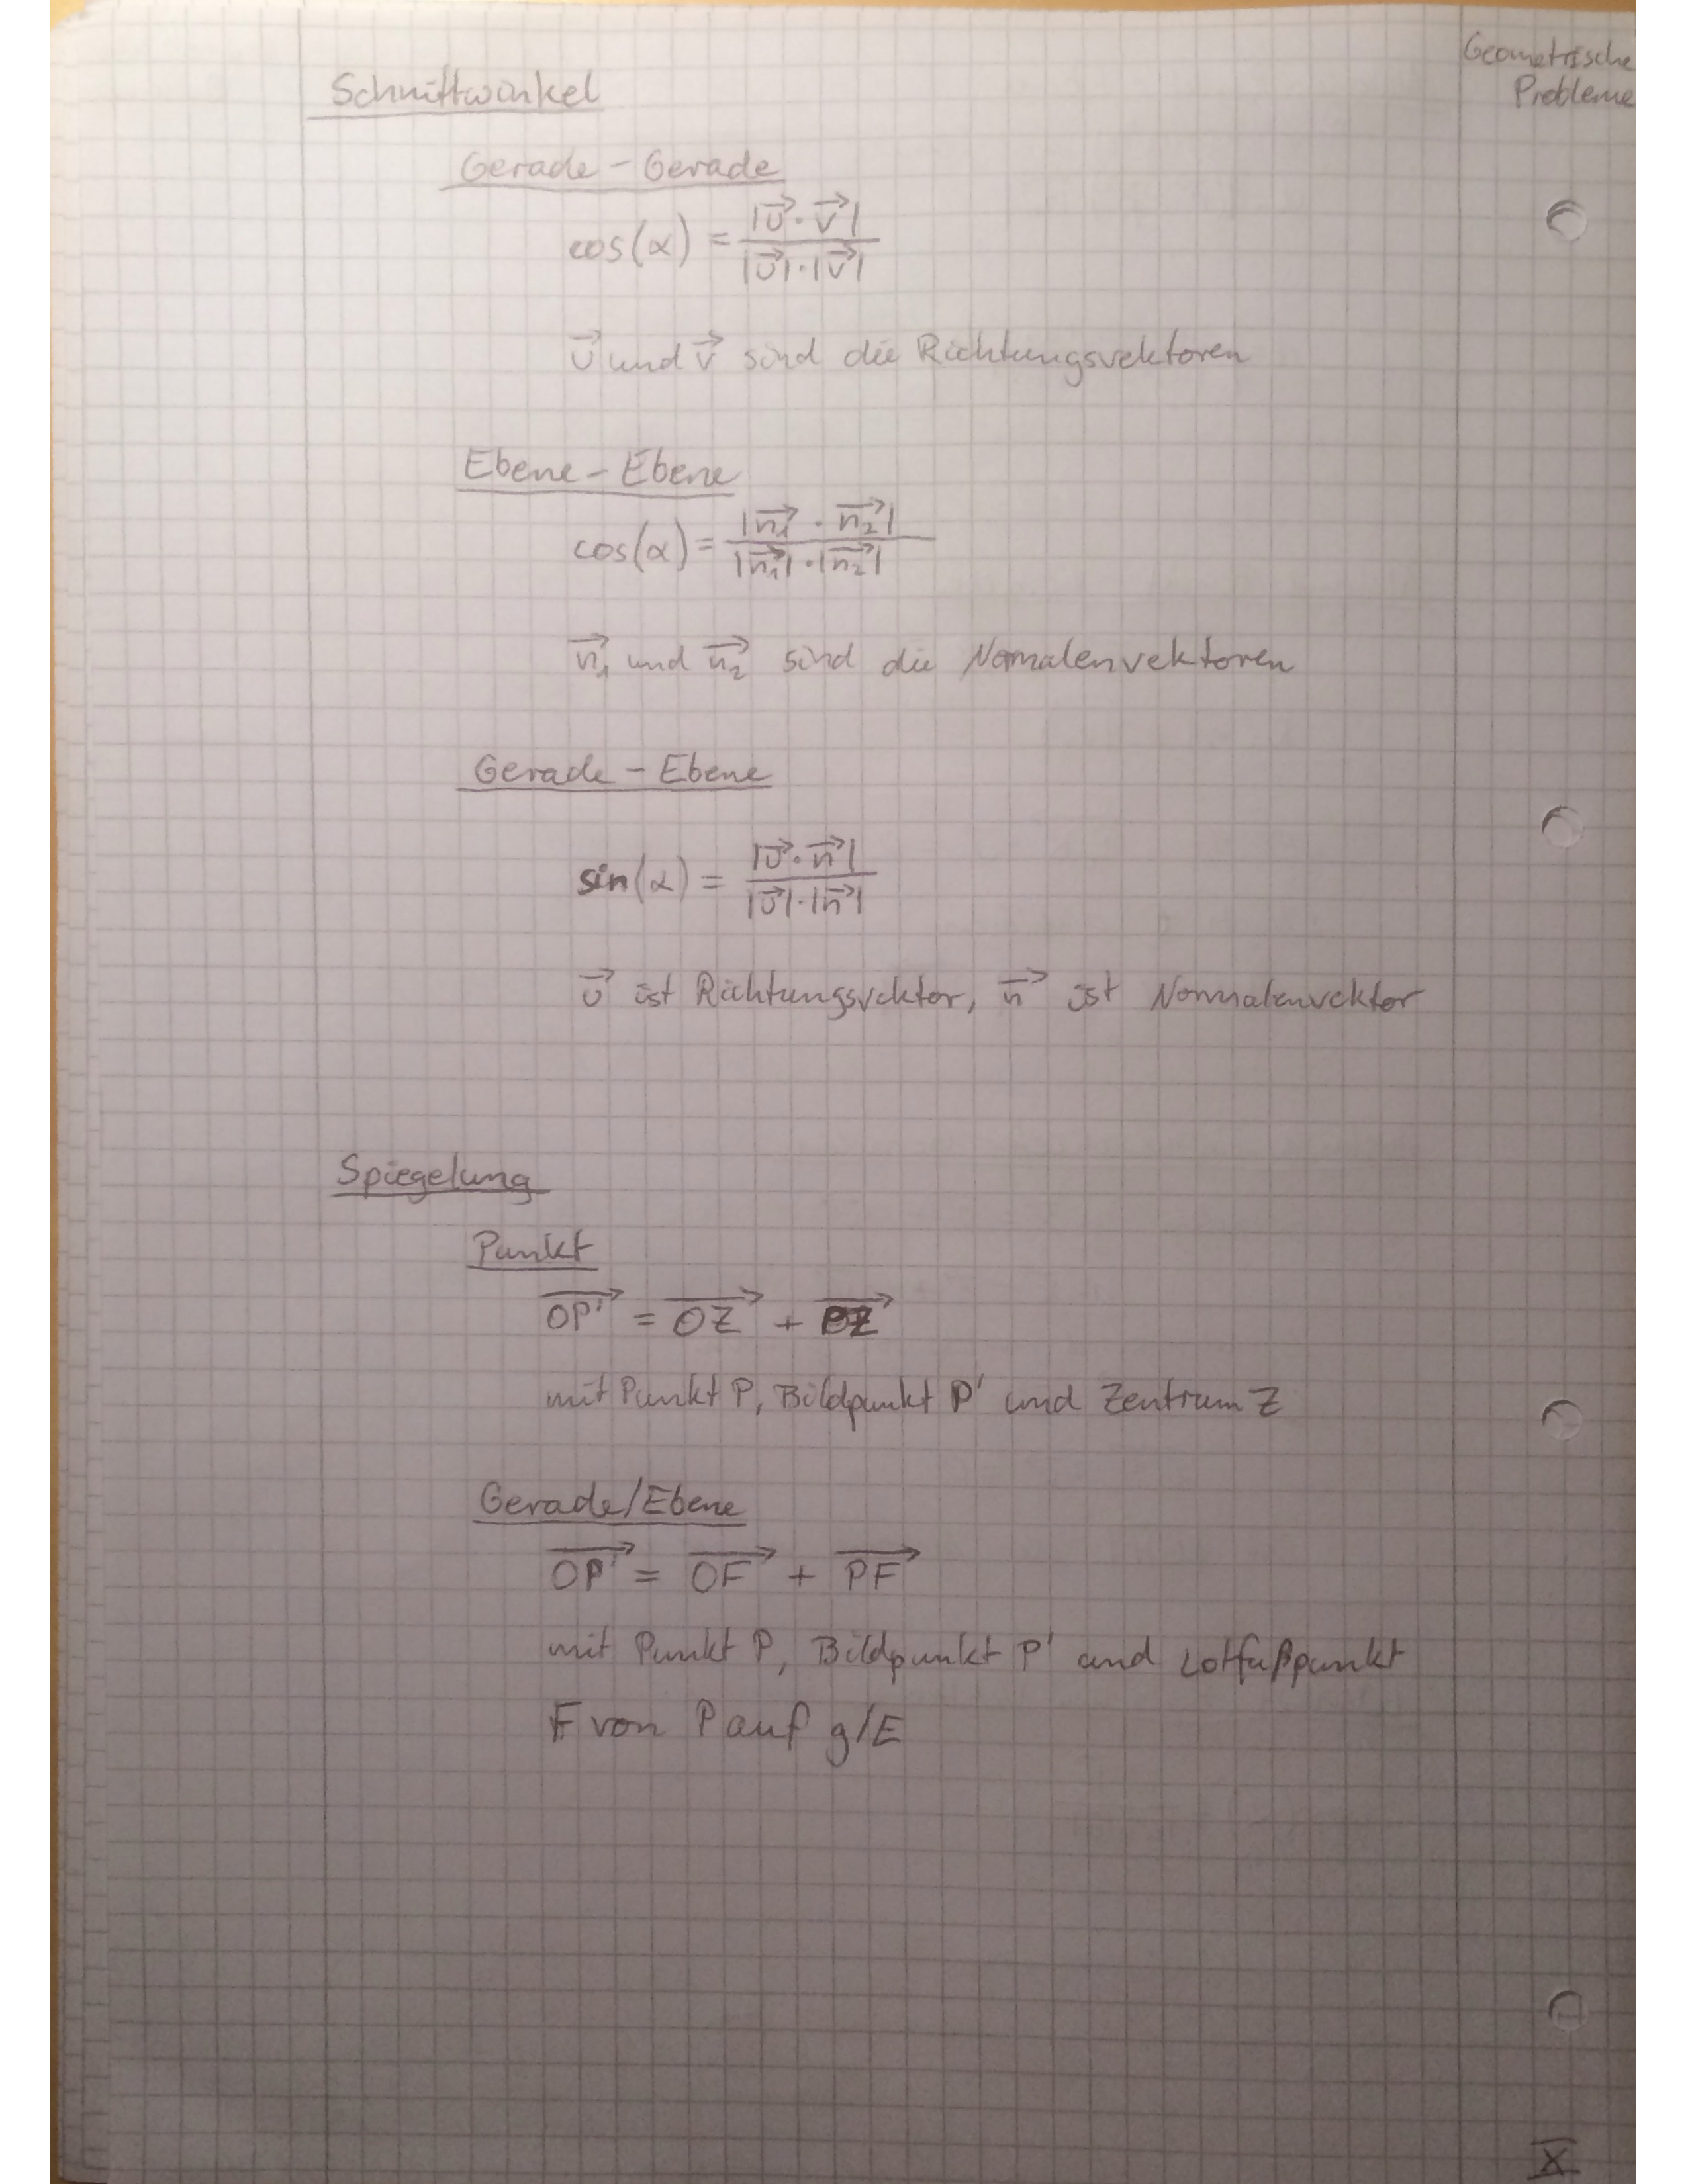 Geometrische
Probleme
Schnittwinkel
Gerade - Gerade
cos(α) = |u⃗ · v⃗| / |u⃗| · |v⃗|
u⃗ und v⃗ sind die Richtungsvektoren
Ebene - Ebene
cos(α) = |n₁⃗ · n₂⃗| / |n₁⃗| · |n₂⃗|
n₁⃗ und n₂⃗ sind die Normalenvektoren
Gerade - Ebene
sin(α) = |u⃗ · n⃗| / |u⃗| · |n⃗|
u⃗ ist Richtungsvektor, n⃗ ist Normalenvektor
Spiegelung
Punkt
OP'⃗ = OZ⃗ + PZ⃗
mit Punkt P, Bildpunkt P' und Zentrum Z
Gerade/Ebene
OP'⃗ = OF⃗ + PF⃗
mit Punkt P, Bildpunkt P' und Lotfußpunkt
F von P auf g/E
X